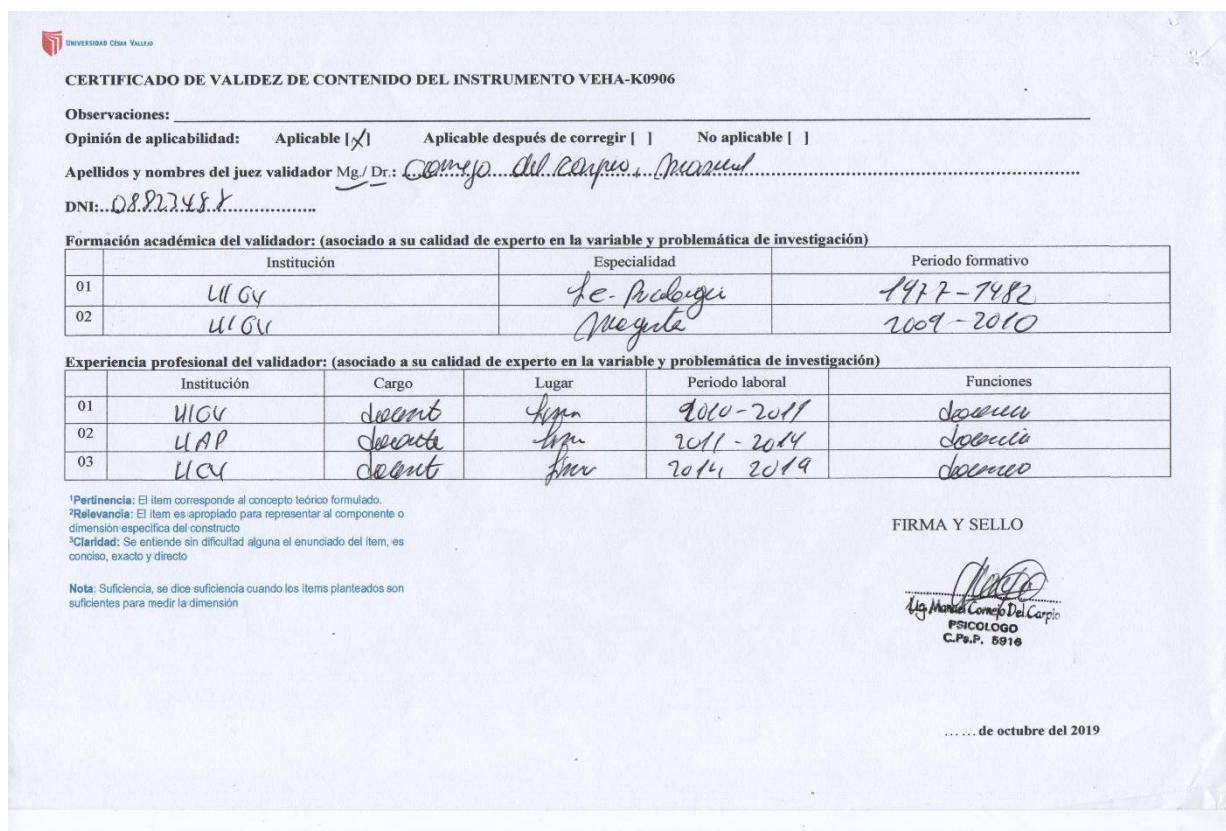 UNIVERSIDAD CÉSAR VALLEJO
CERTIFICADO DE VALIDEZ DE CONTENIDO DEL INSTRUMENTO VEHA-K0906
Observaciones:
Opinión de aplicabilidad: Aplicable [X] Aplicable después de corregir [ ] No aplicable [ ]
Apellidos y nombres del juez validador Mg./ Dr.: Cornejo del Carpio, Manuel
DNI:
Formación académica del validador: (asociado a su calidad de experto en la variable y problemática de investigación)
Institución Especialidad Periodo formativo
01 UIGV 1977-1982
02 UIGV 2009-2010
Experiencia profesional del validador: (asociado a su calidad de experto en la variable y problemática de investigación)
Institución Cargo Lugar Periodo laboral Funciones
01 UIGV docente Lima docencia
02 UAP docente Lima 2011-2014 docencia
03 UCV docente Lima 2014 2019 docencia
¹Pertinencia: El ítem corresponde al concepto teórico formulado.
²Relevancia: El ítem es apropiado para representar al componente o
dimensión específica del constructo
³Claridad: Se entiende sin dificultad alguna el enunciado del ítem, es
conciso, exacto y directo
Nota: Suficiencia, se dice suficiencia cuando los ítems planteados son
suficientes para medir la dimensión
FIRMA Y SELLO
Mg. Manuel Cornejo Del Carpio
PSICOLOGO
C.Ps.P. 5916
......de octubre del 2019